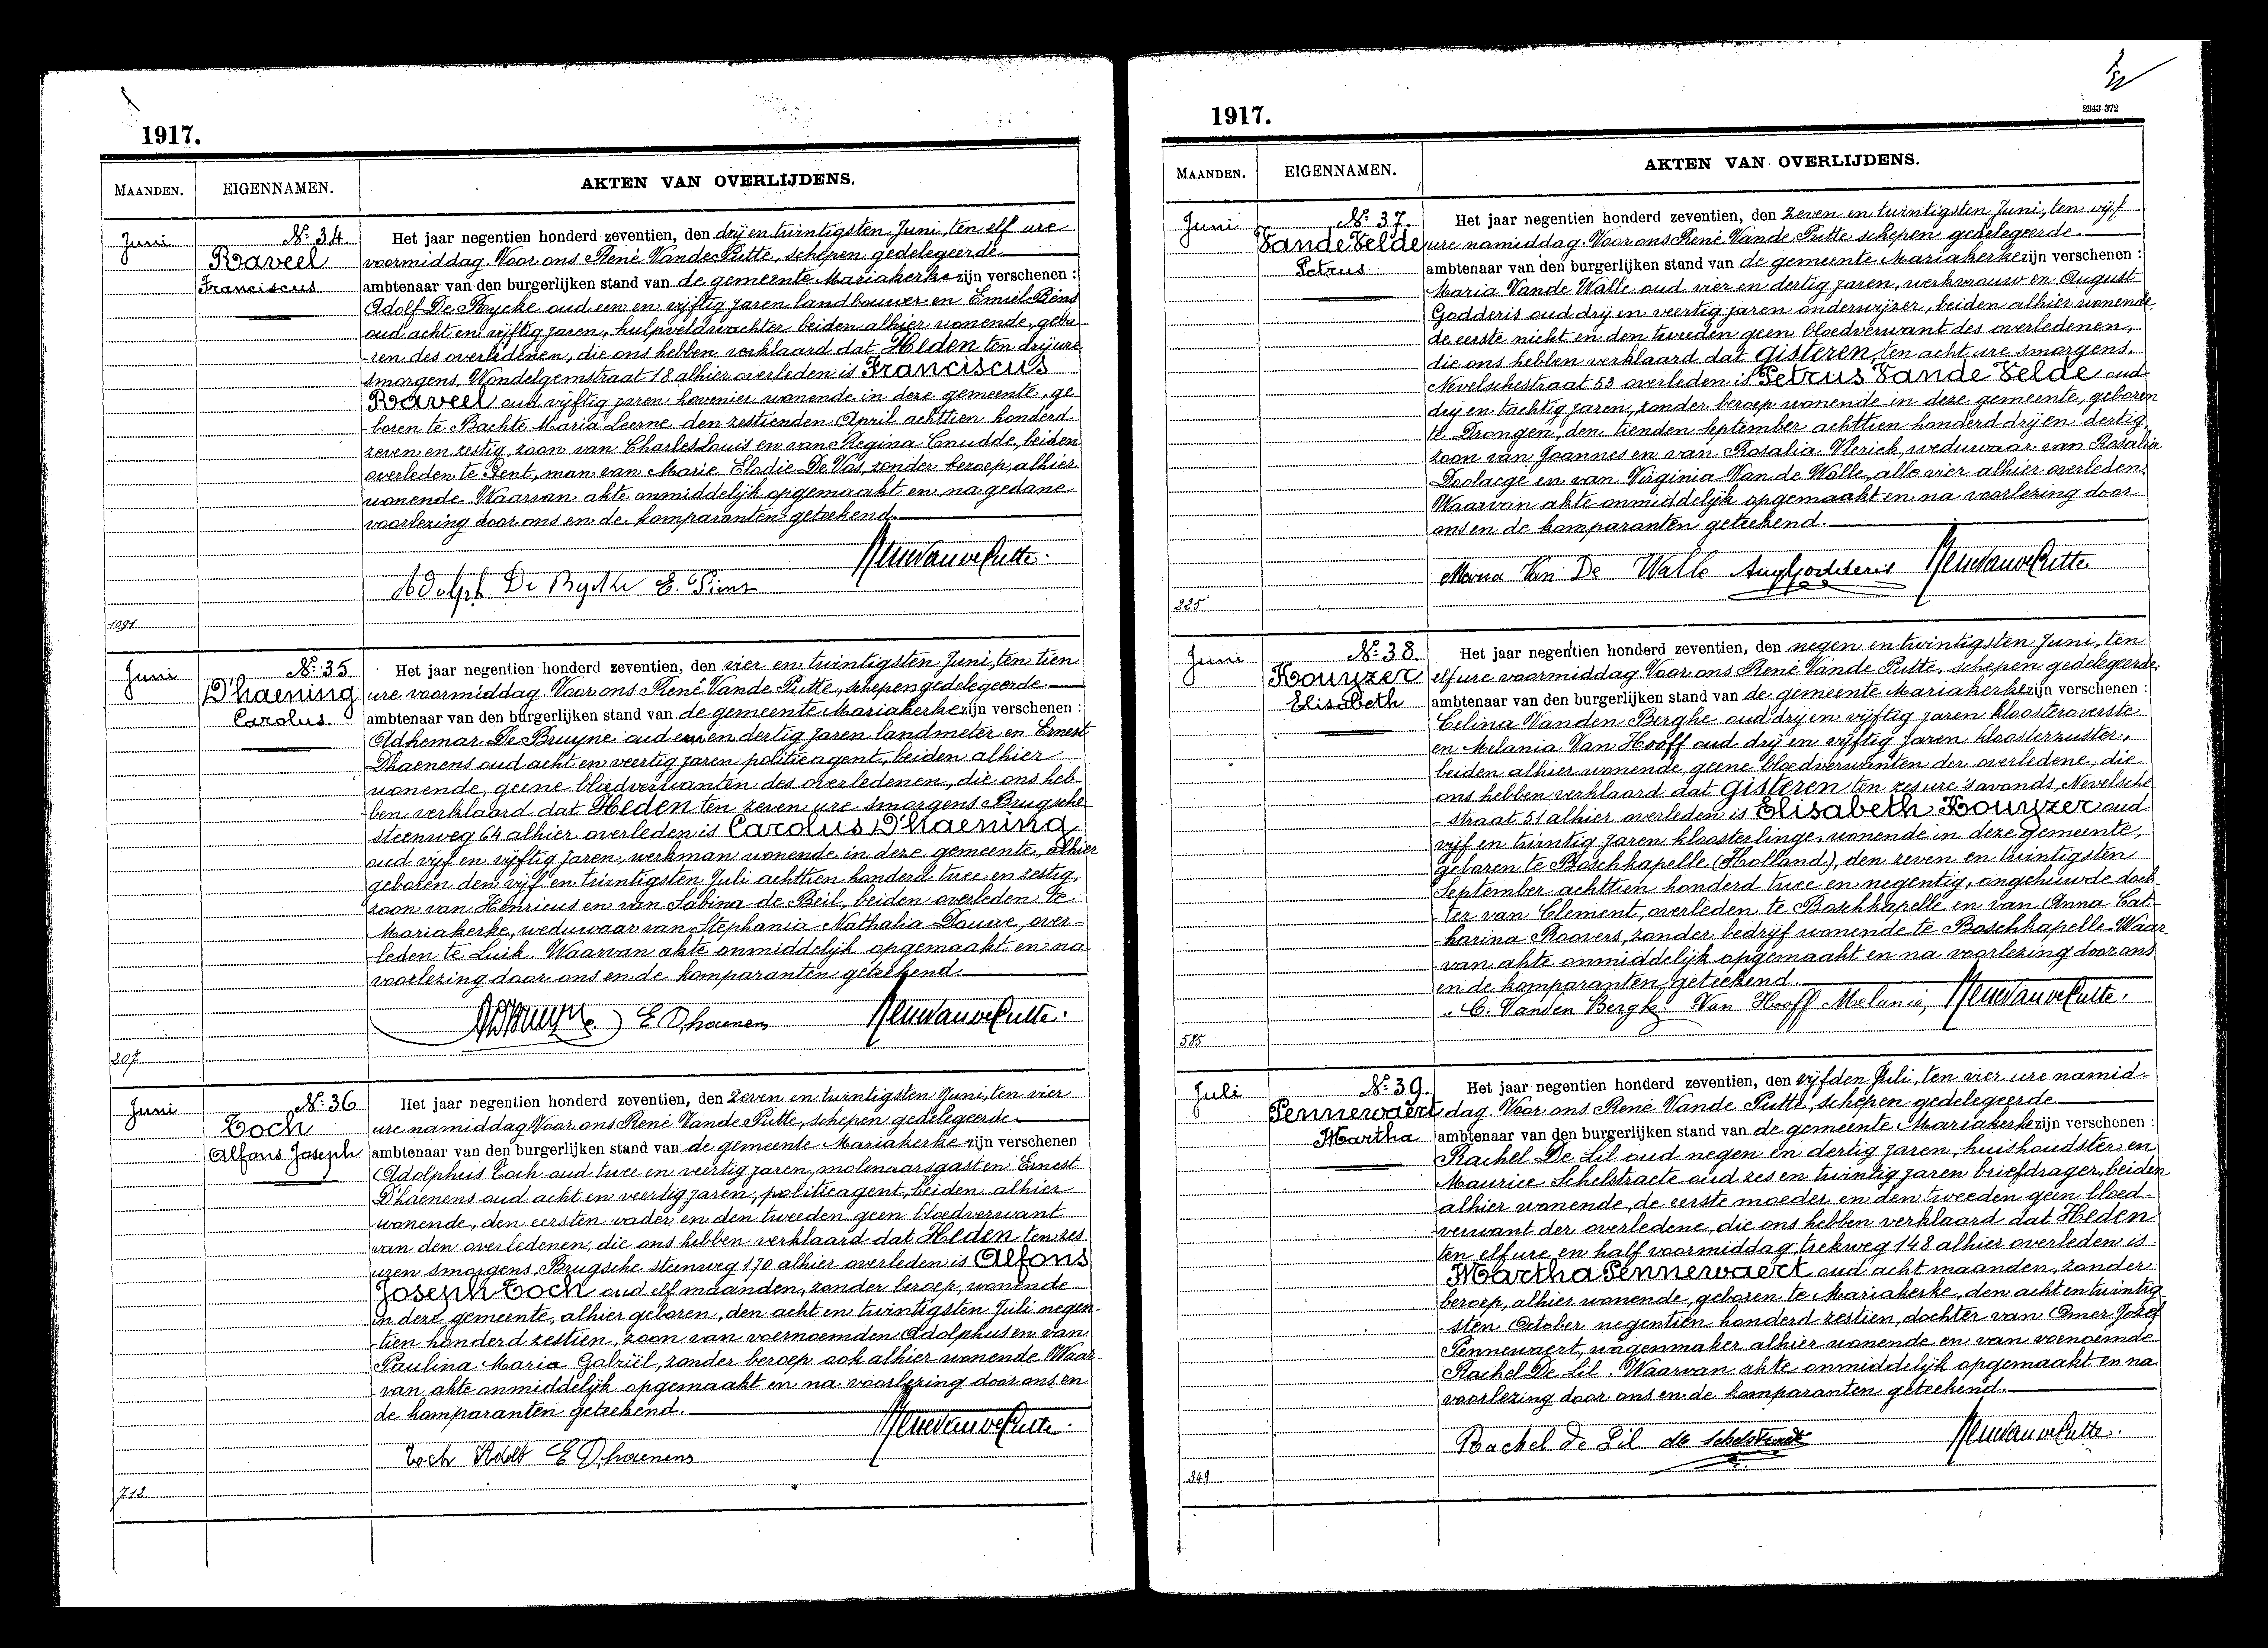 1917.
MAANDEN.
EIGENNAMEN.
AKTEN VAN OVERLIJDENS.
Juni
N.º 34.
Raveel
Franciscus
Het jaar negentien honderd zeventien, den drij en twintigsten Juni, ten elf ure
voormiddag. Voor ons René Vande Putte, schepen gedelegeerde
ambtenaar van den burgerlijken stand van de gemeente Mariakerke zijn verschenen :
Adolf De Rycke oud een en vijftig jaren landbouwer en Emiel Piens
oud acht en vijftig jaren, hulpveldwachter beiden alhier wonende, gebu-
ren des overledenen, die ons hebben verklaard dat Heden ten drij ure
smorgens, Wondelgemstraat 18 alhier overleden is Franciscus
Raveel oud vijftig jaren hovenier wonende in deze gemeente, ge-
boren te Bachte Maria Leerne den zestienden April achttien honderd
zeven en zestig, zoon van Charles Louis en van Regina Cnudde, beiden
overleden te Gent, man van Marie Elodie De Vos, zonder beroep, alhier
wonende. Waarvan akte onmiddelijk opgemaakt en na gedane
voorlezing door ons en de komparanten geteekend.
Adolph De Rycke E. Piens
Rene Van de Putte.
1091
Juni
N.º 35
D'haening
Carolus.
Het jaar negentien honderd zeventien, den vier en twintigsten Juni, ten tien
ure voormiddag. Voor ons René Vande Putte, schepen gedelegeerde
ambtenaar van den burgerlijken stand van de gemeente Mariakerke zijn verschenen :
Adhemar De Bruyne oud een en dertig jaren landmeter en Ernest
Dhaenens oud acht en veertig jaren politieagent, beiden alhier
wonende, geene bloedverwanten des overledenen, die ons heb-
ben verklaard dat Heden ten zeven ure smorgens Brugsche
steenweg 64 alhier overleden is Carolus D'haening
oud vijf en vijftig jaren, werkman wonende in deze gemeente, alhier
geboren den vijf en twintigsten Juli achttien honderd twee en zestig,
zoon van Henricus en van Sabina de Beil, beiden overleden te
Mariakerke, weduwaar van Stephania Nathalia Douwe, over-
leden te Luik. Waarvan akte onmiddelijk opgemaakt en na
voorlezing door ons en de komparanten geteekend.
E Dhaenens
Rene Van de Putte.
207
Juni
N.º 36
Toch
Alfons Joseph
Het jaar negentien honderd zeventien, den zeven en twintigsten Juni, ten vier
ure namiddag Voor ons René Vande Putte, schepen gedelegeerde
ambtenaar van den burgerlijken stand van de gemeente Mariakerke zijn verschenen
Adolphus Toch oud twee en veertig jaren, molenaarsgast en Ernest
D'haenens oud acht en veertig jaren, politieagent, beiden alhier
wonende, den eersten vader en den tweeden geen bloedverwant
van den overledenen, die ons hebben verklaard dat Heden ten zes
uren smorgens, Brugsche steenweg 170 alhier overleden is Alfons
Joseph Toch oud elf maanden, zonder beroep, wonende
in deze gemeente, alhier geboren, den acht en twintigsten Juli negen-
tien honderd zestien, zoon van voernoemden Adolphus en van
Paulina Maria Gabriël, zonder beroep ook alhier wonende. Waar-
van akte onmiddelijk opgemaakt en na voorlezing door ons en
de komparanten geteekend.
Toch Adolf E Dhaenens
Rene Van de Putte.
712
1917.
2343-372
MAANDEN.
EIGENNAMEN.
AKTEN VAN OVERLIJDENS.
Juni
N.º 37.
Vande Velde
Petrus
Het jaar negentien honderd zeventien, den zeven en twintigsten Juni, ten vijf
ure namiddag. Voor ons René Vande Putte schepen gedelegeerde.
ambtenaar van den burgerlijken stand van de gemeente Mariakerke zijn verschenen :
Maria Vande Walle oud vier en dertig jaren, werkvrouw en August
Godderis oud drij en veertig jaren onderwijzer, beiden alhier wonende
de eerste nicht en den tweeden geen bloedverwant des overledenen,
die ons hebben verklaard dat gisteren, ten acht ure smorgens,
Nevelschestraat 53 overleden is Petrus Vande Velde oud
drij en tachtig jaren, zonder beroep wonende in deze gemeente, geboren
te Drongen, den tienden September achttien honderd drij en dertig,
zoon van Joannes en van Rosalia Vlerick, weduwaar van Rosalia
Doolaege en van Virginia Van de Walle, alle vier alhier overleden.
Waarvan akte onmiddelijk opgemaakt en na voorlezing door
ons en de komparanten geteekend.
Maria Van De Walle Aug Godderis Rene Van de Putte
225
Juni
N.º 38.
Kouyzer
Elisabeth
Het jaar negentien honderd zeventien, den negen en twintigsten Juni, ten
elf ure voormiddag Voor ons René Vande Putte, schepen gedelegeerde.
ambtenaar van den burgerlijken stand van de gemeente Mariakerke zijn verschenen :
Celina Vanden Berghe oud drij en vijftig jaren kloosteroverste
en Melania Van Hooff oud drij en vijftig jaren kloosterzuster,
beiden alhier wonende, geene bloedverwanten der overledene, die
ons hebben verklaard dat gisteren ten zes ure 's avonds, Nevelsche
straat 51 alhier overleden is Elisabeth Kouyzer oud
vijf en twintig jaren kloosterlinge, wonende in deze gemeente,
geboren te Boschkapelle (Holland), den zeven en twintigsten
September achttien honderd twee en negentig, ongehuwde doch-
ter van Clement, overleden te Boschkapelle en van Anna Cat-
harina Roovers, zonder bedrijf wonende te Boschkapelle. Waar-
van akte onmiddelijk opgemaakt en na voorlezing door ons
en de komparanten geteekend.
C. Vanden Berghe Van Hooff Melanie, Rene Van de Putte.
585
Juli
N.º 39.
Pennewaert
Martha
Het jaar negentien honderd zeventien, den vijfden Juli, ten vier ure namid-
dag. Voor ons René Vande Putte, schepen gedelegeerde
ambtenaar van den burgerlijken stand van de gemeente Mariakerke zijn verschenen :
Rachel De Lil oud negen en dertig jaren, huishoudster en
Maurice Schelstraete oud zes en twintig jaren briefdrager, beiden
alhier wonende, de eerste moeder en den tweeden geen bloed-
verwant der overledene, die ons hebben verklaard dat Heden
ten elf ure en half voormiddag, trekweg 148 alhier overleden is
Martha Pennewaert oud acht maanden, zonder
beroep, alhier wonende, geboren te Mariakerke, den acht en twintig-
sten October negentien honderd zestien, dochter van Omer Jozef
Pennewaert, wagenmaker alhier wonende en van voernoemde
Rachel De Lil. Waarvan akte onmiddelijk opgemaakt en na
voorlezing door ons en de komparanten geteekend.
Rachel De Lil M Schelstraete Rene Van de Putte.
349